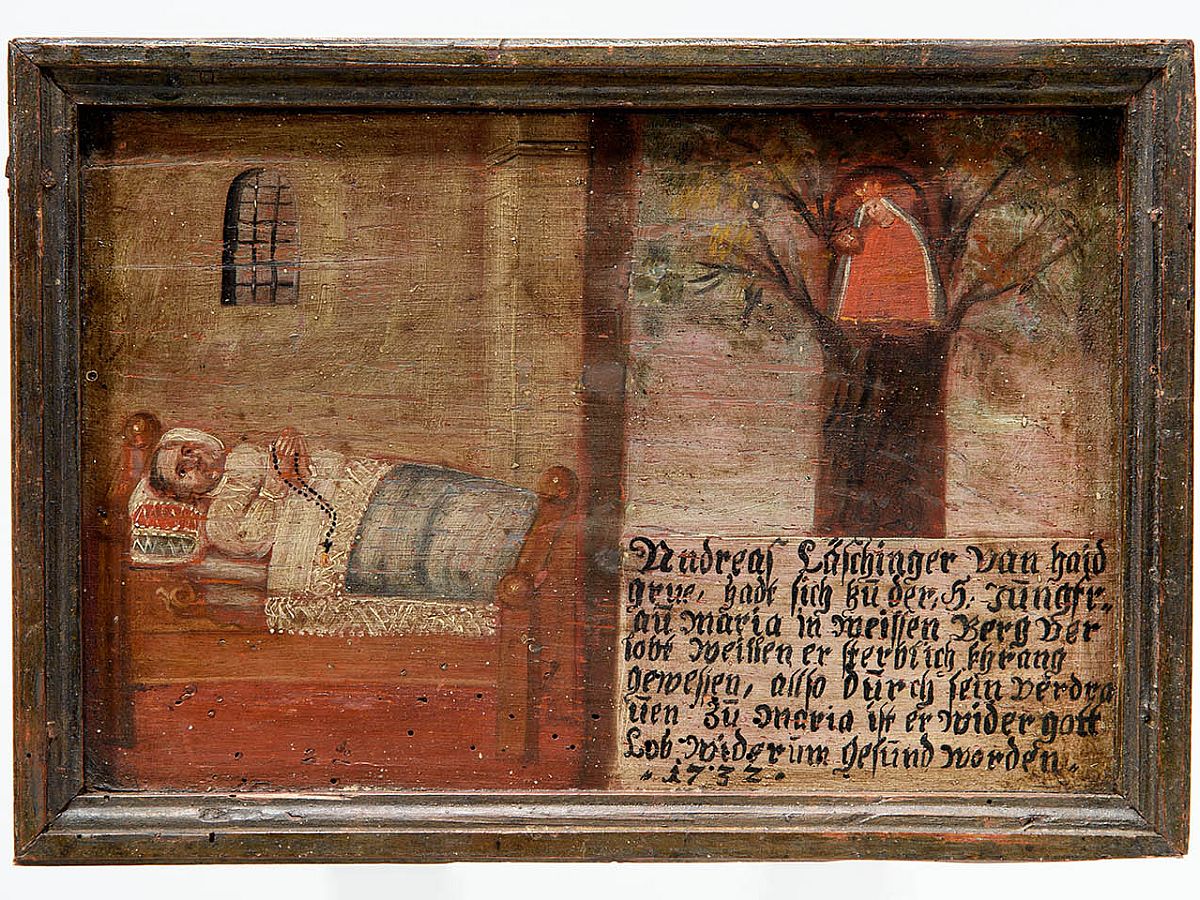 Andreas Läschinger Van haid
grue, hadt sich zu der, H. Jungfr-
au Maria in Weissen Berg ver
lobt Weillen er sterblich khrang
gewessen, allso Durch sein verdra
uen Zu Maria ist er Wider gott
Lob. Widerum gesund worden.
. 1732.